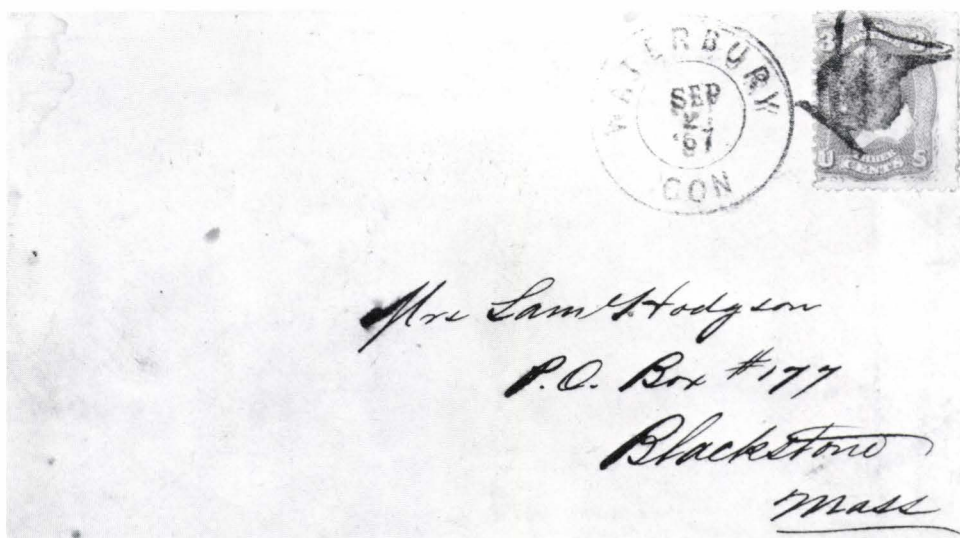 WATERBURY
SEP
'67
CON
3 3
U S
THREE
CENTS
Mrs Saml Hodgson
P.O. Box #177
Blackstone
Mass